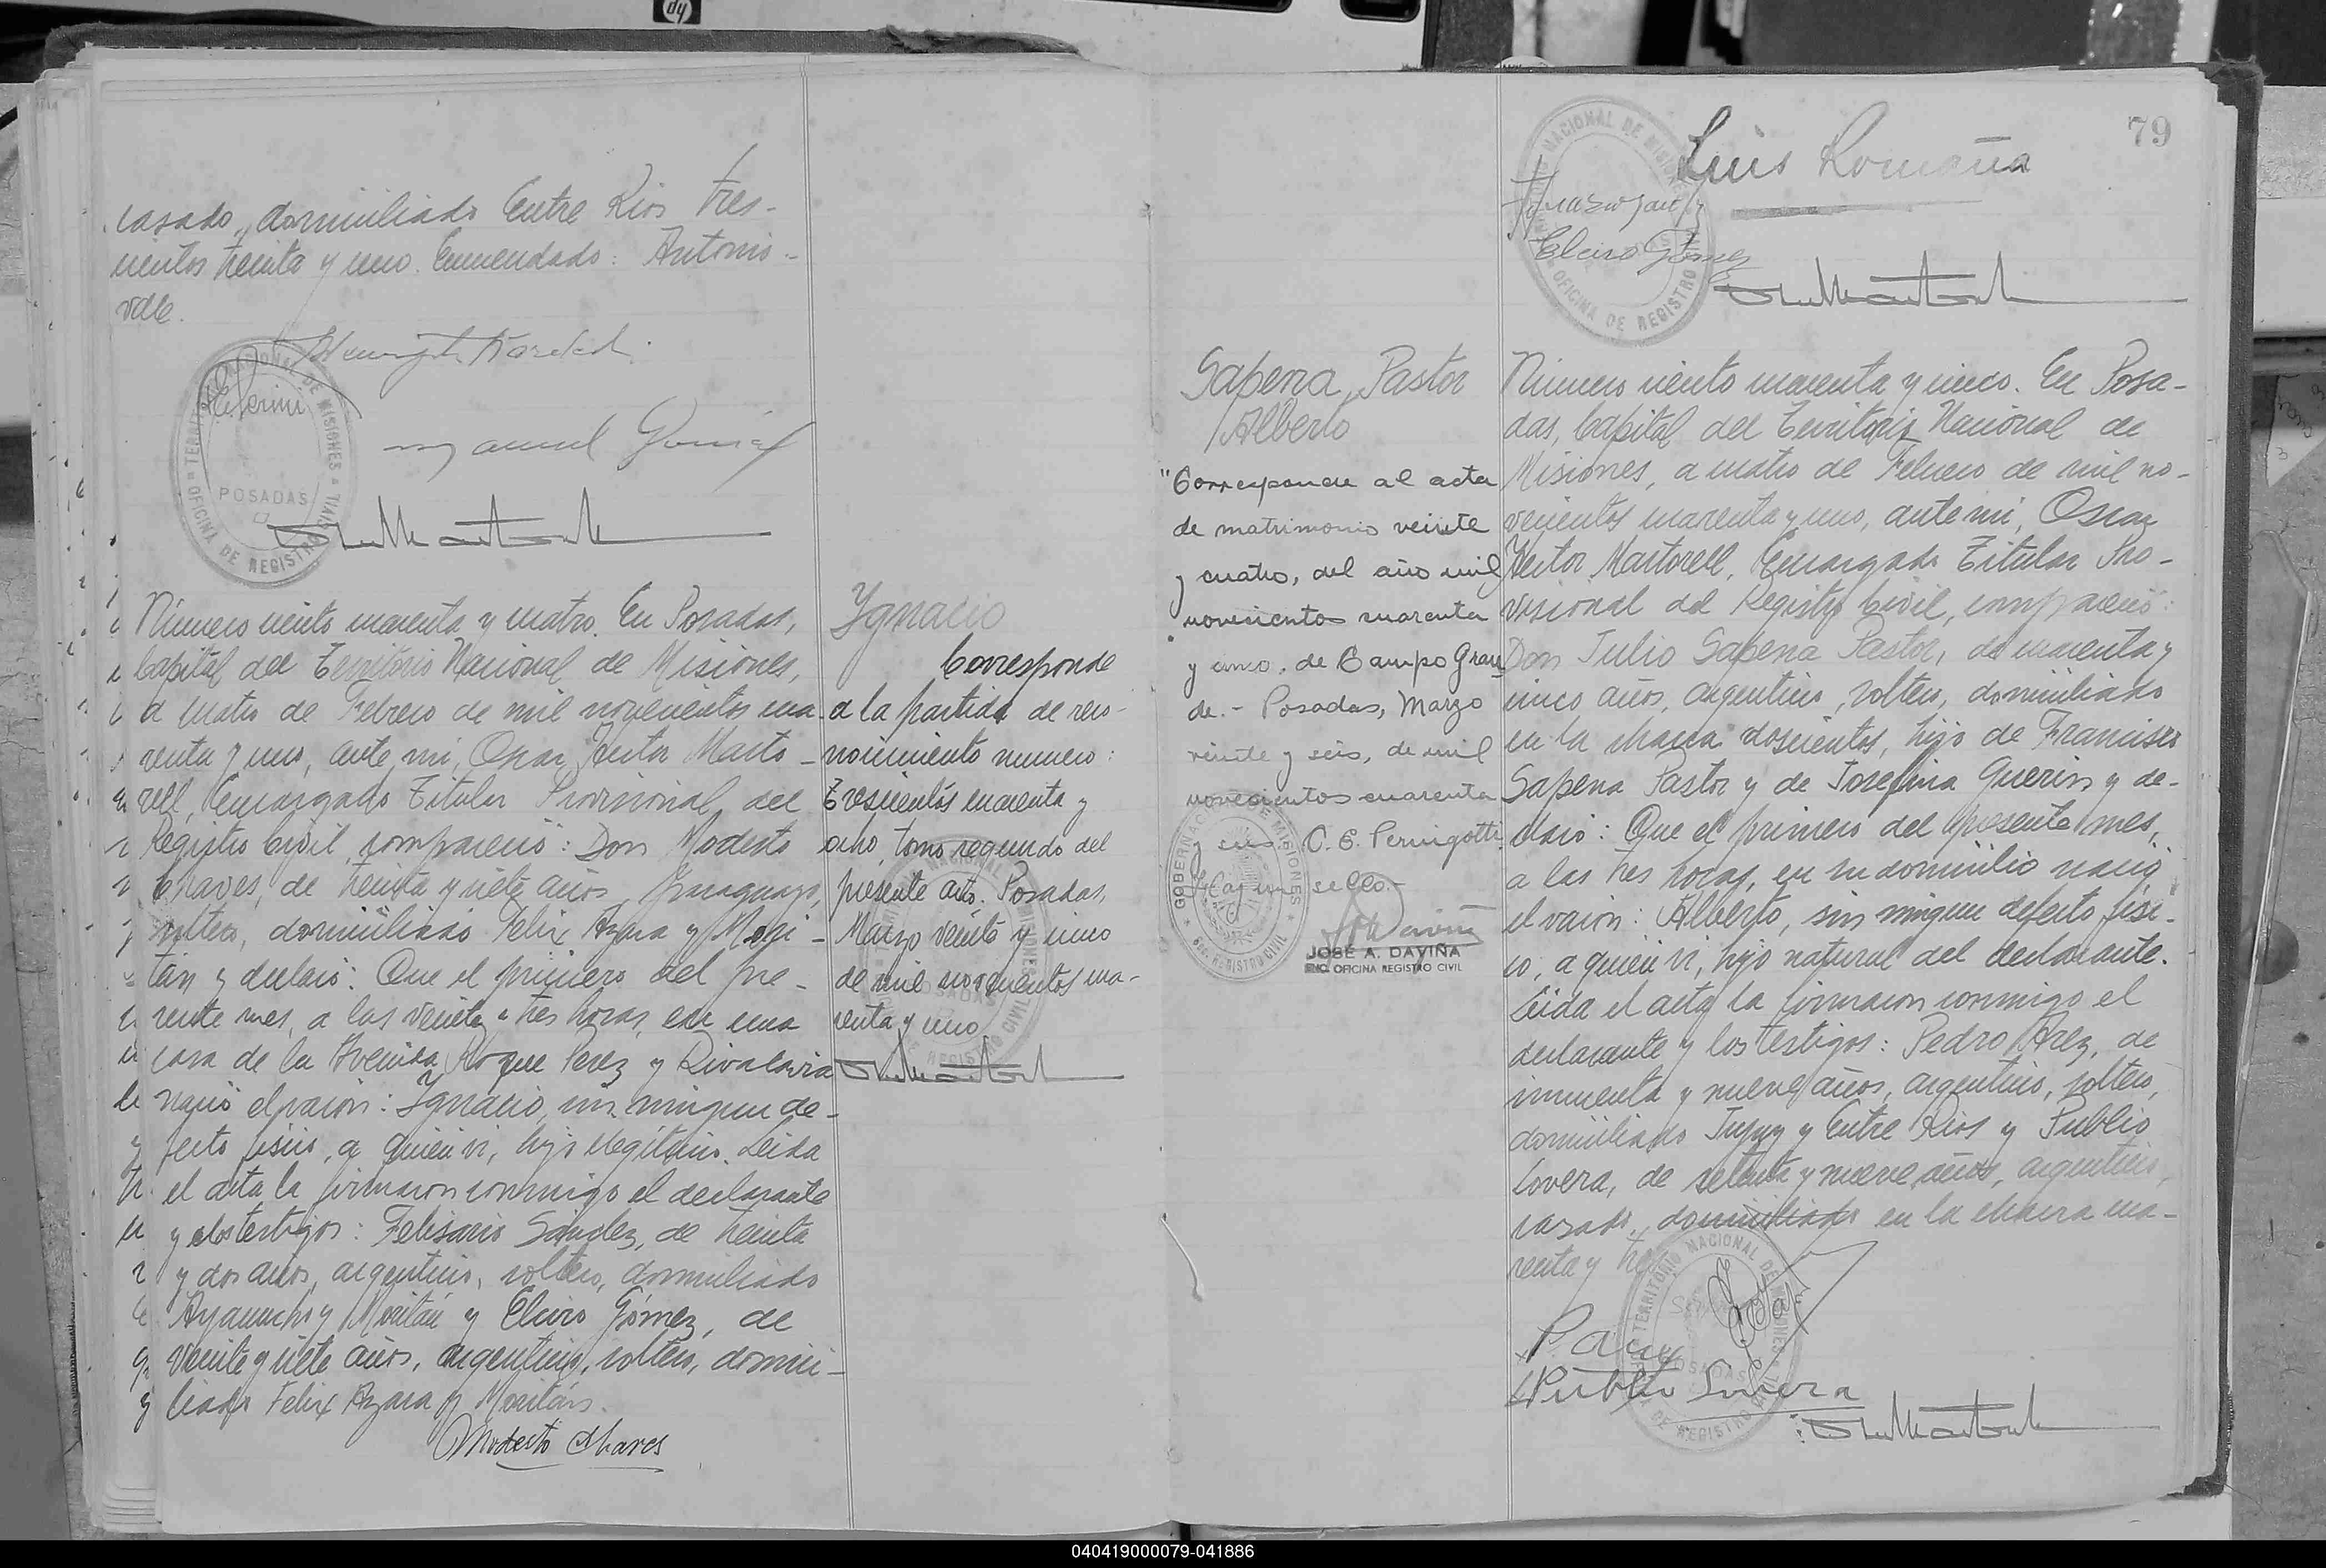 casado, domiciliado Entre Rios tres-
cientos treinta y uno. Enmendado: Antonio-
vale.
TERRITORIO NACIONAL DE MISIONES
OFICINA DE REGISTRO CIVIL
POSADAS
Manuel
Número ciento cuarenta y cuatro. En Posadas,
Capital del Territorio Nacional de Misiones,
a cuatro de Febrero de mil novecientos cua-
renta y uno, ante mi, Oscar Hector Marto-
rell, Encargado Titular Provisional del
Registro Civil, compareció: Don Modesto
Chaves, de treinta y siete años, paraguayo,
soltero, domiciliado Felix Azara y
y declaró: Que el primero del pre-
sente mes, a las veinte y tres horas, en una
casa de la Avenida Roque Perez y Rivadavia
nació el varón: Ygnacio, sin ningun de-
fecto fisico, a quien vi, hijo ilegitimo. Leida
el acta la firmaron conmigo el declarante
y los testigos: Felisario Sandez, de treinta
y dos años, argentino, soltero, domiciliado
Ayacucho y Moritán y Elciro Gómez, de
veinte y siete años, argentino, soltero, domici-
liado Felix Azara y Moritán.
Modesto Chaves
Ygnacio
Corresponde
a la partida de reco-
nocimiento numero:
Trescientos cuarenta y
ocho, tomo segundo del
presente año. Posadas,
Marzo veinte y cinco
de mil novecientos cua-
renta y uno.
79
Luis Romaña
Elciro Gómez
NACIONAL DE MISIONES
OFICINA DE REGISTRO
Sapena Pastor
Alberto
"Corresponde al acta
de matrimonio veinte
y cuatro, del año mil
novecientos cuarenta
y cinco, de Campo Gran
de.- Posadas, Marzo
veinte y seis, de mil
novecientos cuarenta
y C. E. Pernigotti
Hay un sello.-
GOBERNACION DE MISIONES
REGISTRO CIVIL
JOSÉ A. DAVIÑA
ENC. OFICINA REGISTRO CIVIL
Número ciento cuarenta y cinco. En Posa-
das, Capital del Territorio Nacional de
Misiones, a cuatro de Febrero de mil no-
vecientos cuarenta y uno, ante mi, Oscar
Hector Martorell, Encargado Titular Pro-
visional del Registro Civil, compareció:
Don Julio Sapena Pastor, de cuarenta y
cinco años, argentino, soltero, domiciliado
en la chacra doscientos, hijo de Francisco
Sapena Pastor y de Josefina Guerin y de-
claró: Que el primero del presente mes,
a las tres horas, en su domicilio nació
el varón: Alberto, sin ningun defecto físi-
co, a quien vi, hijo natural del declarante.
Leida el acta la firmaron conmigo el
declarante y los testigos: Pedro Arez, de
cincuenta y nueve años, argentino, soltero,
domiciliado Jujuy y Entre Rios y Publio
Lovera, de setenta y nueve años, argentino,
casado, domiciliado en la chacra cua-
renta y tres.
TERRITORIO NACIONAL DE MISIONES
POSADAS
DE REGISTRO
P. Arez
Publio Lovera
040419000079-041886